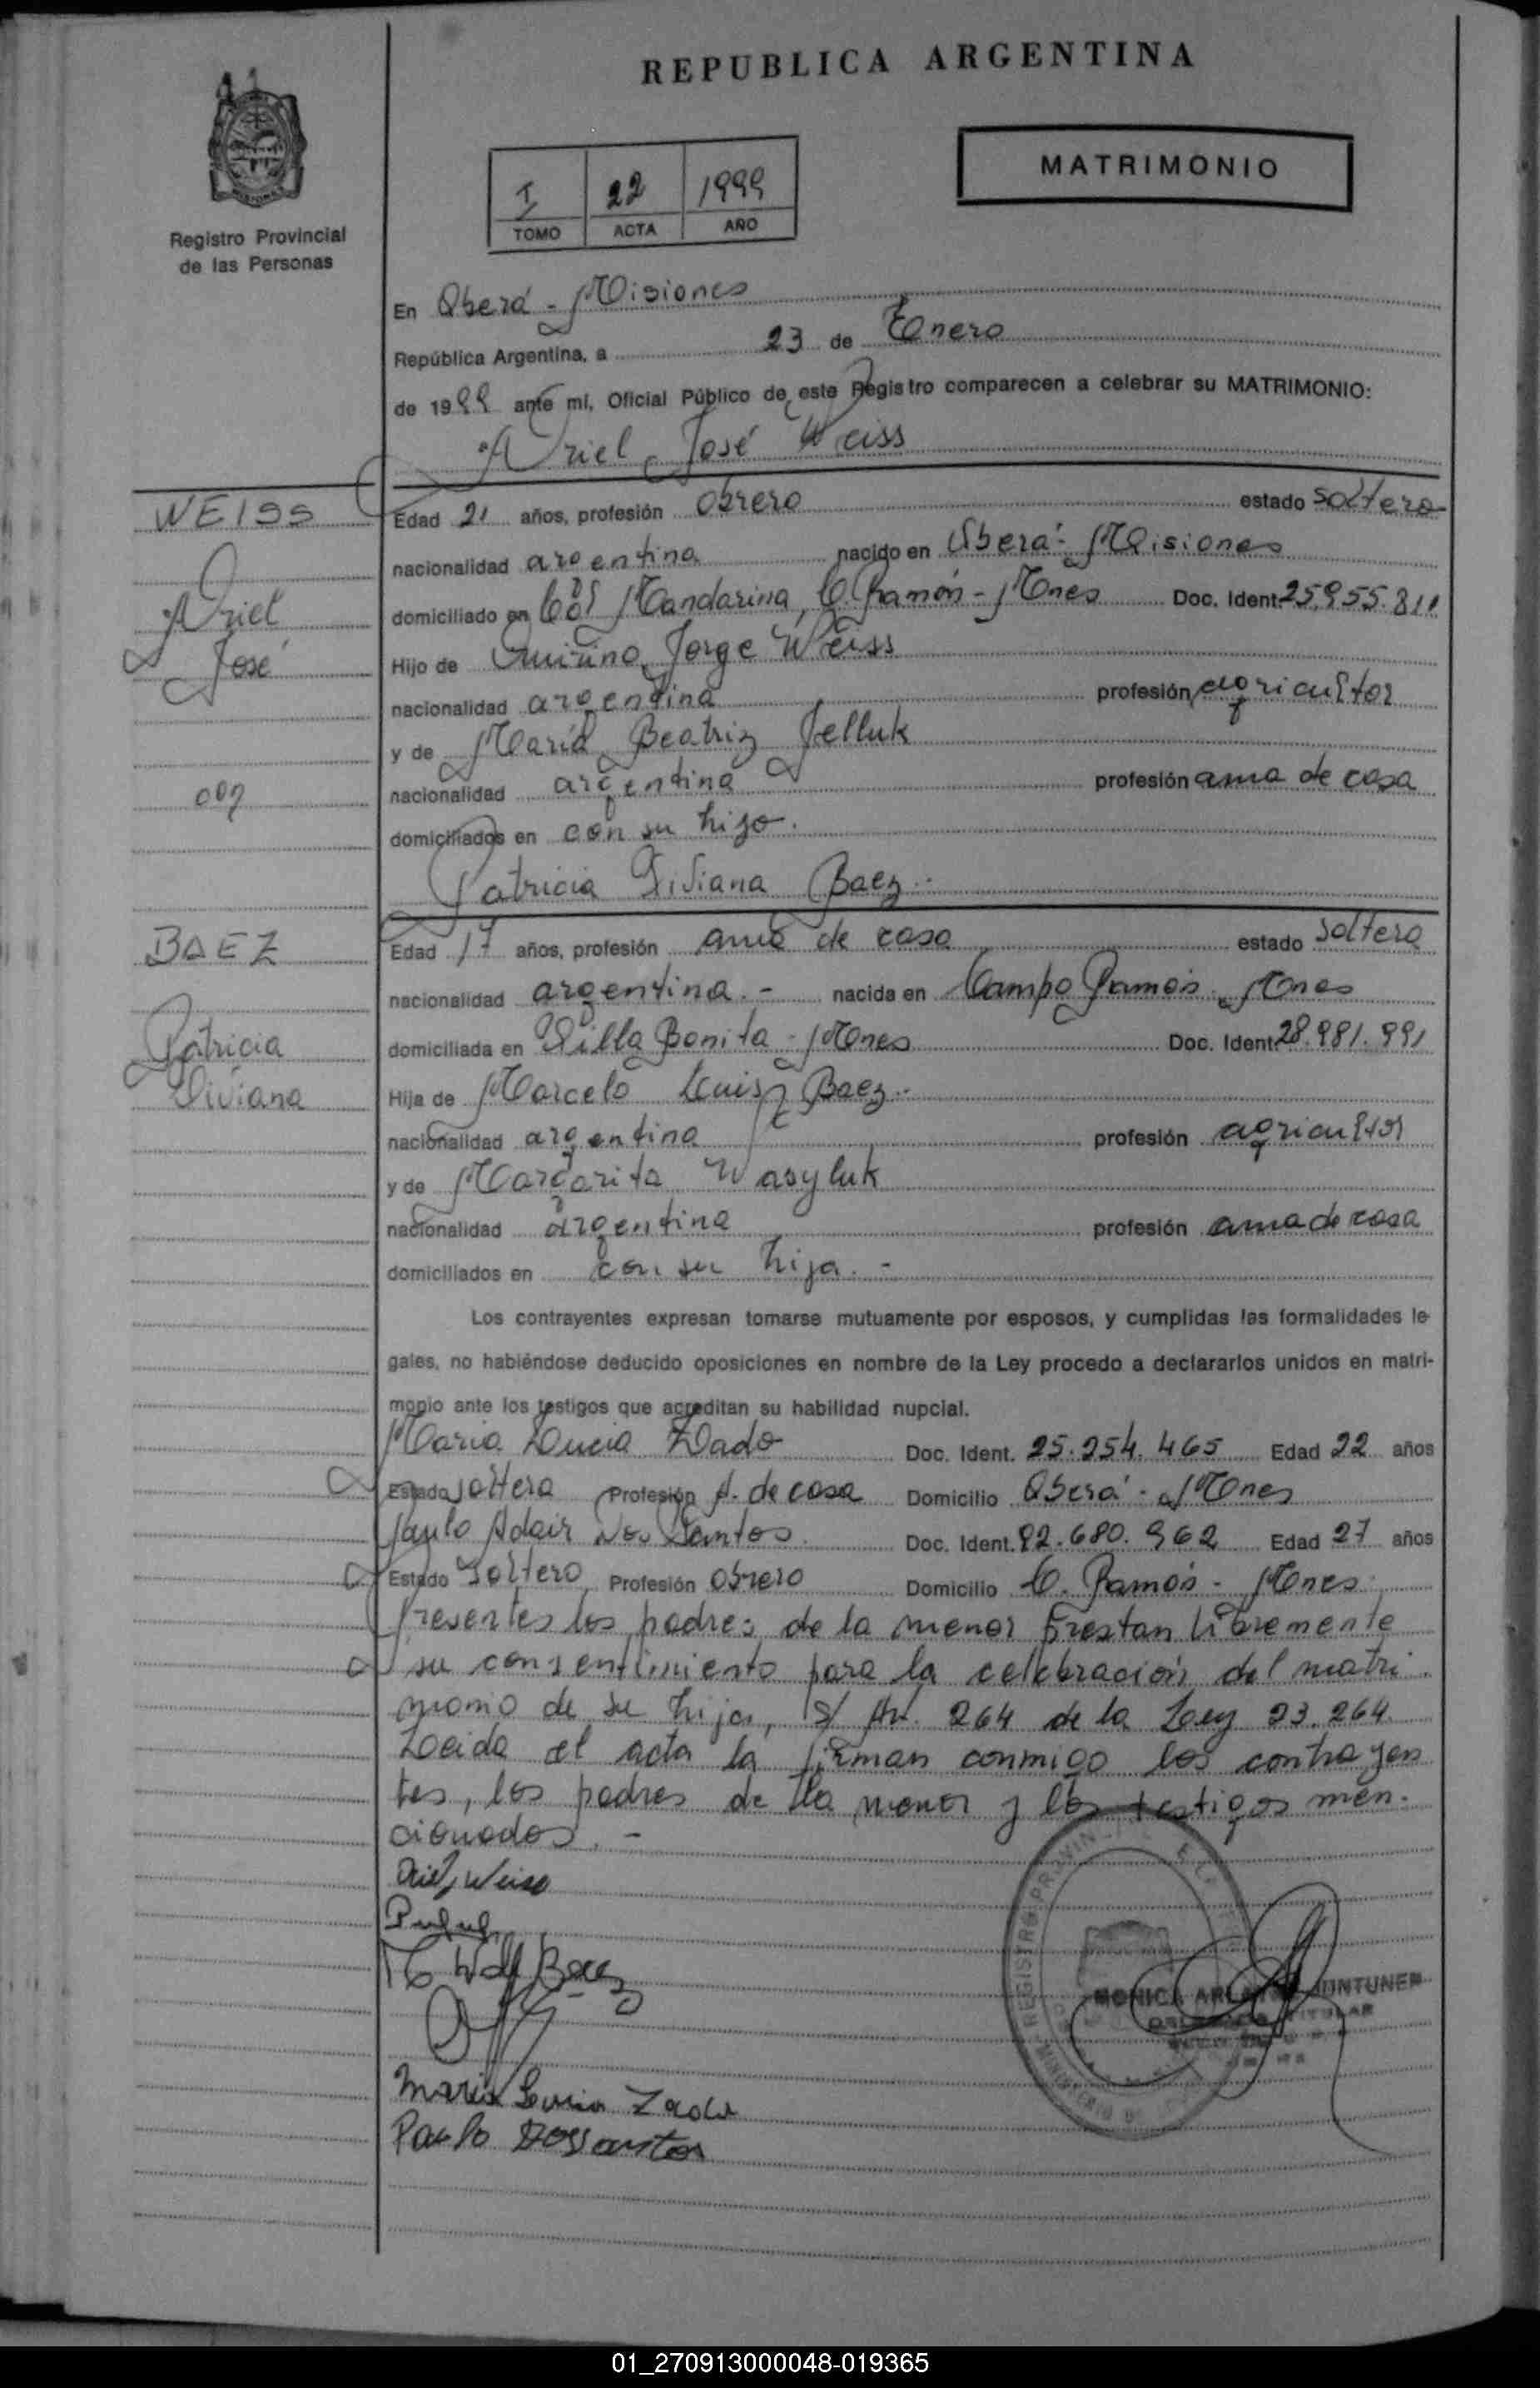 REPUBLICA ARGENTINA
MATRIMONIO
I 22 1999
TOMO ACTA AÑO
Registro Provincial
de las Personas
En Oberá - Misiones
República Argentina, a 23 de Enero
de 1999 ante mi, Oficial Público de este Registro comparecen a celebrar su MATRIMONIO:
Ariel José Weiss
WEISS
Ariel
José
Edad 21 años, profesión Obrero estado soltero
nacionalidad argentina nacido en Oberá - Misiones
domiciliado en Col Mandarina, C. Ramón - Mnes Doc. Ident. 25.955.811
Hijo de Quirino Jorge Weiss
nacionalidad argentina profesión agricultor
y de María Beatriz Jelluk
nacionalidad argentina profesión ama de casa
domiciliados en con su hijo.
Patricia Viviana Baez.-
BAEZ
Patricia
Viviana
Edad 17 años, profesión ama de casa estado soltera
nacionalidad argentina.- nacida en Campo Ramón - Mnes
domiciliada en Villa Bonita - Mnes Doc. Ident. 28.981.991
Hija de Marcelo Luis Baez.-
nacionalidad argentina profesión agricultor
y de Margarita Wasyluk
nacionalidad argentina profesión ama de casa
domiciliados en con su hija.-
Los contrayentes expresan tomarse mutuamente por esposos, y cumplidas las formalidades le-
gales, no habiéndose deducido oposiciones en nombre de la Ley procedo a declararlos unidos en matri-
monio ante los testigos que acreditan su habilidad nupcial.
Maria Lucia Zado Doc. Ident. 25.254.465 Edad 22 años
Estado soltera Profesión A. de casa Domicilio Oberá - Mnes
Paulo Adair Dos Santos Doc. Ident. 92.680.962 Edad 27 años
Estado Soltero Profesión Obrero Domicilio C. Ramón - Mnes
Presentes los padres de la menor Prestan libremente
su consentimiento para la celebración del matri-
monio de su hija, s/ Art. 264 de la Ley 23.264.
Leida el acta la firman conmigo los contrayen
tes, los padres de la menor y los testigos men-
cionados.-
Ariel Weiss
Baez
REGISTRO PROVINCIAL
MONICA JUNTUNEN
TITULAR
MINISTERIO
Maria Lucia Zado
Paulo Dossantos
01_270913000048-019365